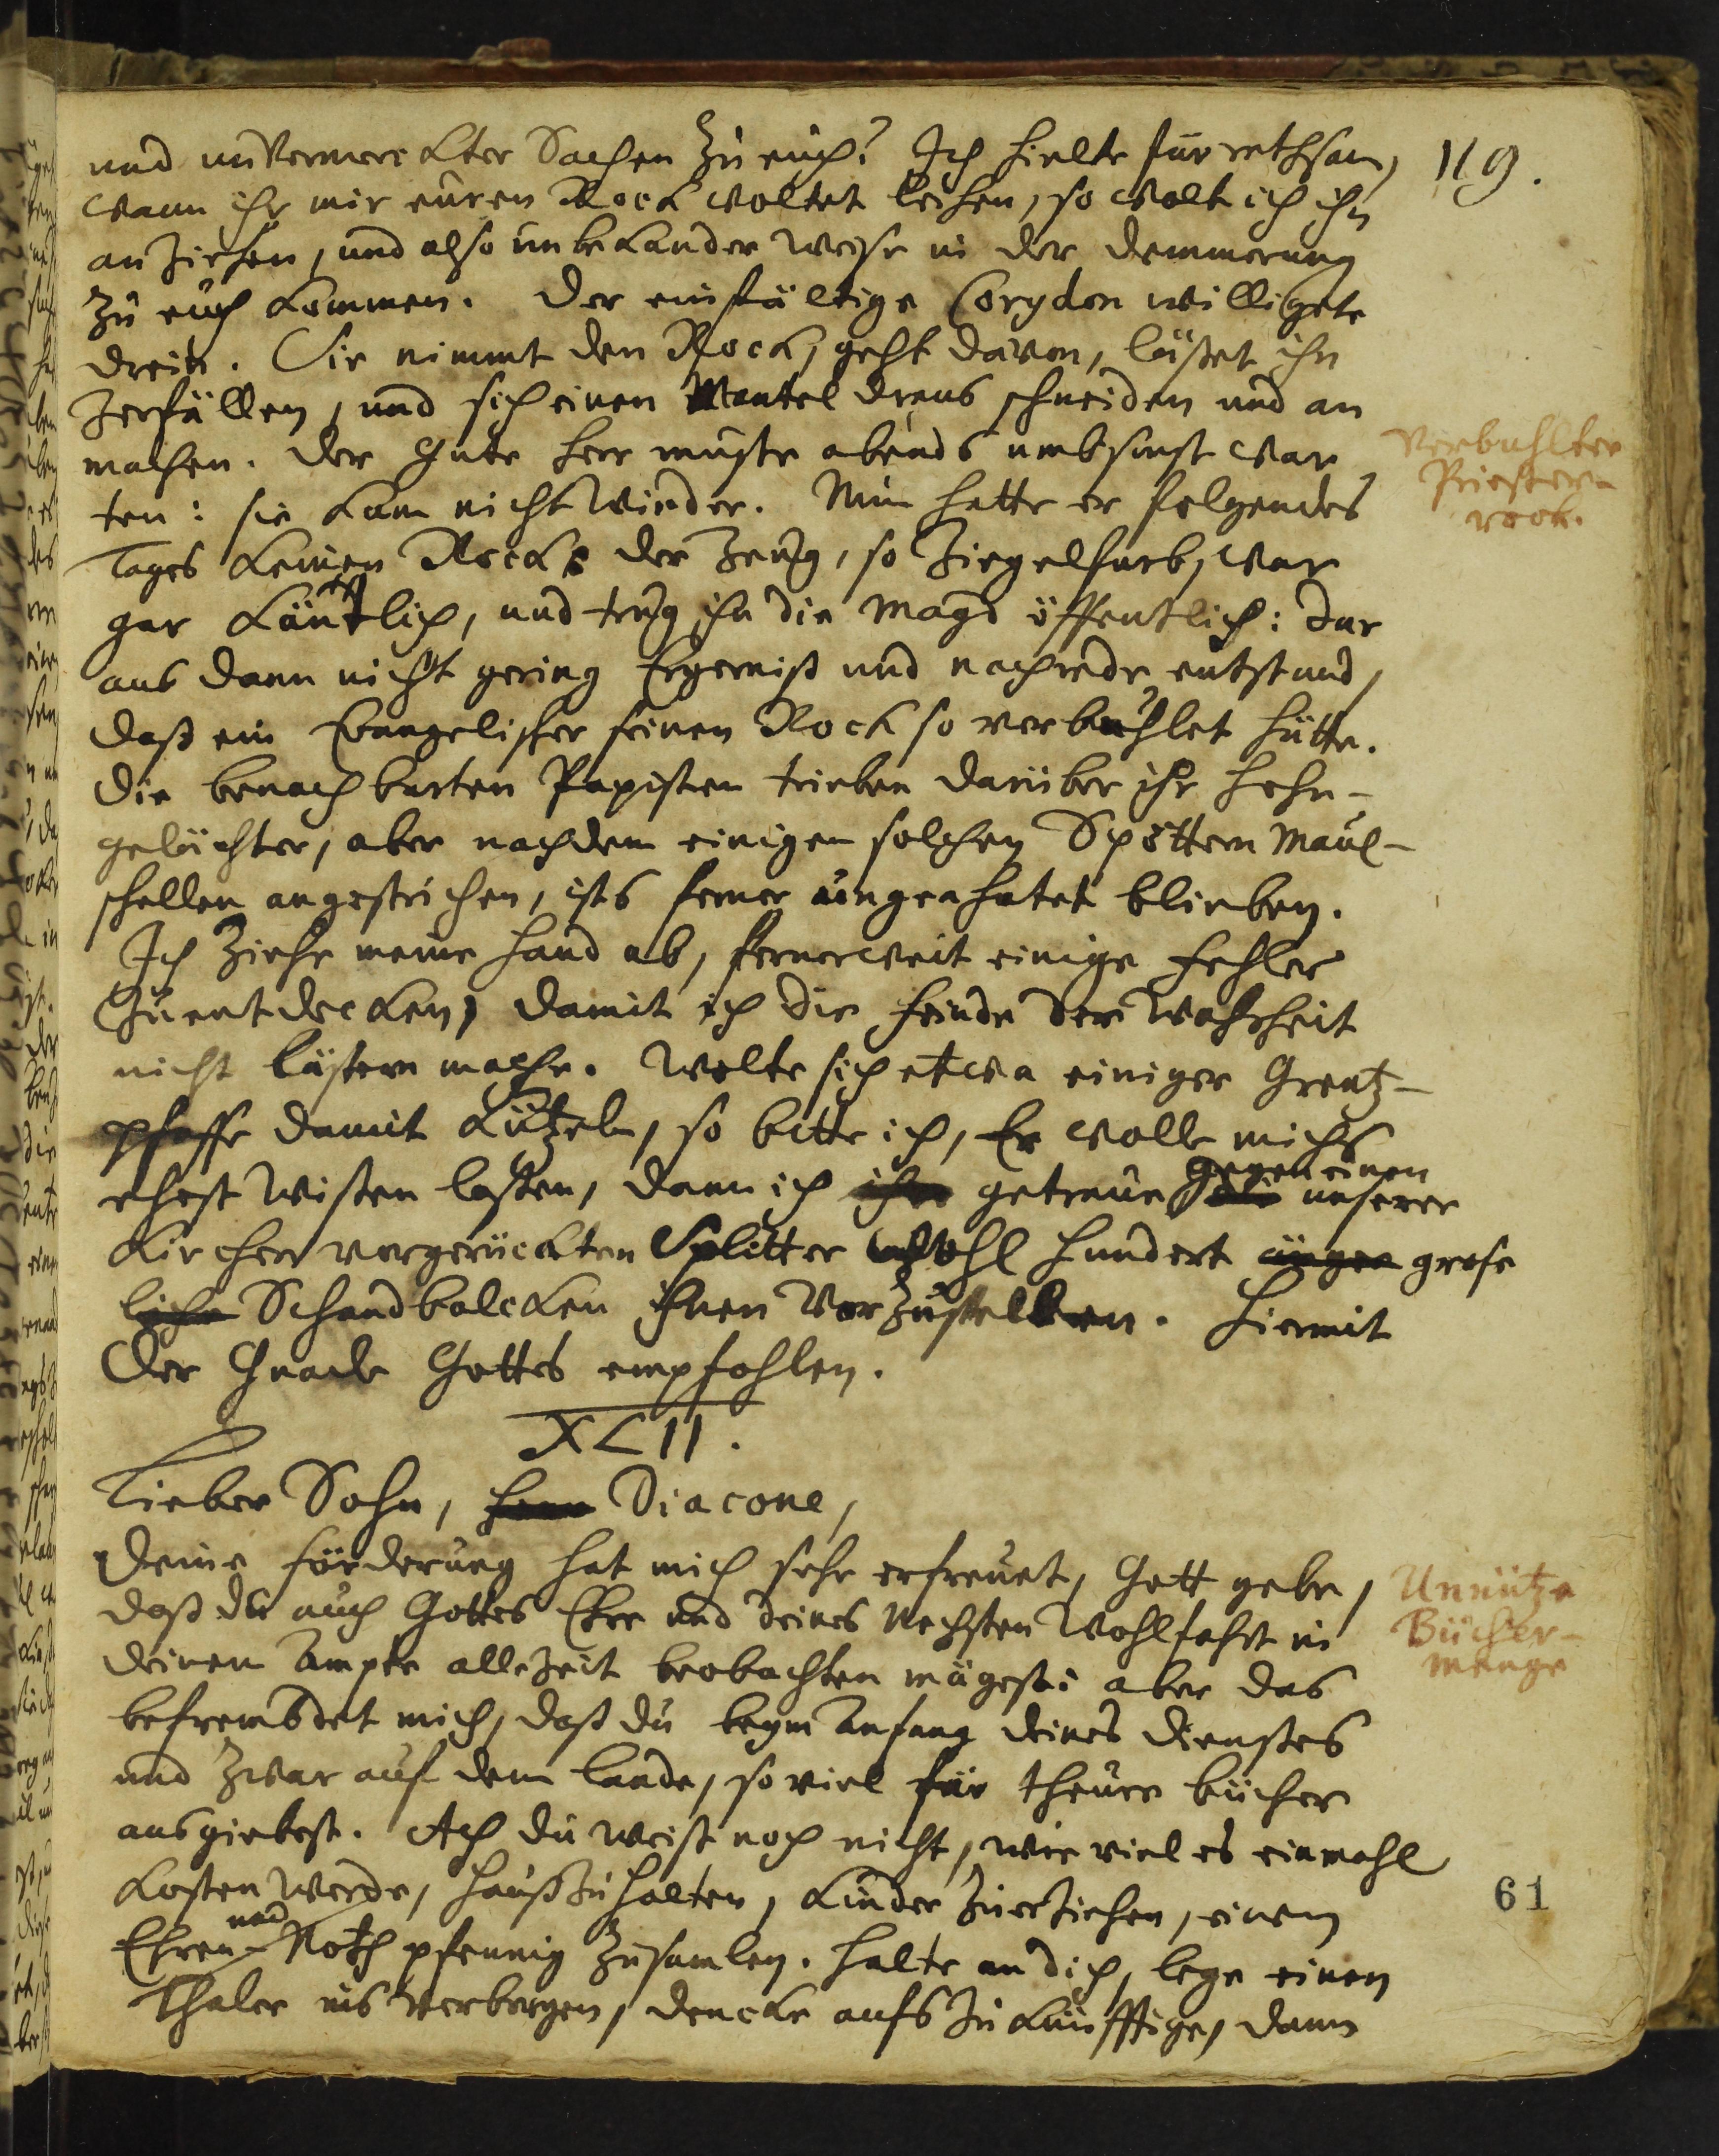 119.
und unvermerckter Sachen zu euch? Ich hielte für rathsam,
wann ihr mir euren Rock woltet leihen, so wolt ich ihn
anziehen, und also unbekander Weise in der demmerung
zu euch kommen. Der einfältige Corydon willigete
drein. Sie nimmt den Rock, geht davon, läßet ihn
zerfällen, und sich einen Mantel draus schneiden und an
machen. Der Gute Herr muste abends umbsonst war
ten: sie kam nicht wieder. Nun hatte er folgendes
Tages keinen Rock: der Zeug, so ziegelfarb, war
gar käntlich, und trug ihn die Magd öffentlich: dar
aus dann nicht gering Ergerniß und nachrede entstund,
daß ein Evangelischer seinen Rock so verbuhlet hätte.
Die benachbarten Papisten trieben darüber ihr Hohn-
gelächter, aber nachdem einigen solchen Spöttern Maul-
schellen angestrichen, ists ferner ungeahntet blieben.
Ich ziehe meine Hand ab, fernerweit einige Fehler
zu entdecken, damit ich die Feinde der Wahrheit
nicht lästern mache. Wolte sich etwa einiger Grentz-
pfaffe damit kützeln, so bitte ich, Er wolle michs
ehest wißen laßen, dann ich getraue gegen einen unserer
Kirchen vorgerückten Splitter wohl hundert grose
Schandbalcken ihnen vorzustellen. Hiermit
der Gnade Gottes empfohlen.
Verbuhlter
Priester-
rock.
XCII.
Lieber Sohn, Diacone,
Deine förderung hat mich sehr erfreuet, Gott gebe,
daß du auch Gottes Ehre und deines Nechsten Wohlfahrt in
deinem Ampte allezeit beobachten mögest: aber das
befrembdet mich, daß du beym Anfang deines Dienstes
und zwar auf dem Lande, so viel für theure bücher
ausgiebest. Ach du weist noch nicht, wie viel es einmahl
kosten werde, hauß zu halten, kinder zu erziehen, einen
Ehren- und Noth pfennig zu samlen. Halte an dich, lege einen
Thaler ins verborgen, dencke aufs zukünfftige, dann
Unnütze
Bücher-
menge
61